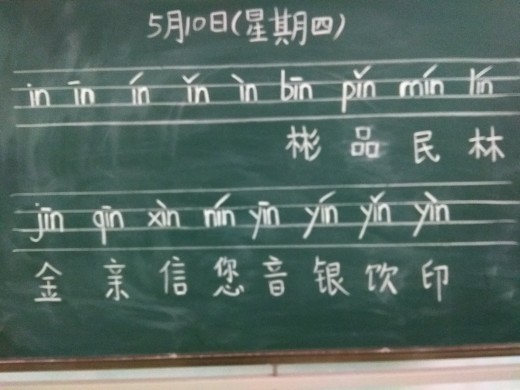 5月10日(星期四)
in īn ín ǐn ìn bīn pǐn mín lín
彬 品 民 林
jīn qīn xìn nín yīn yín yǐn yìn
金 亲 信 您 音 银 饮 印